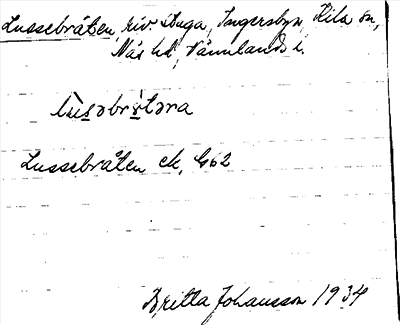 Lussebråten, riv. stuga, Ingersbyn, Kila sn,
Näs hd, Värmlands l.
lùsəbrɷ̀təra
Lussebråten ek, G62
Britta Johansson 1934